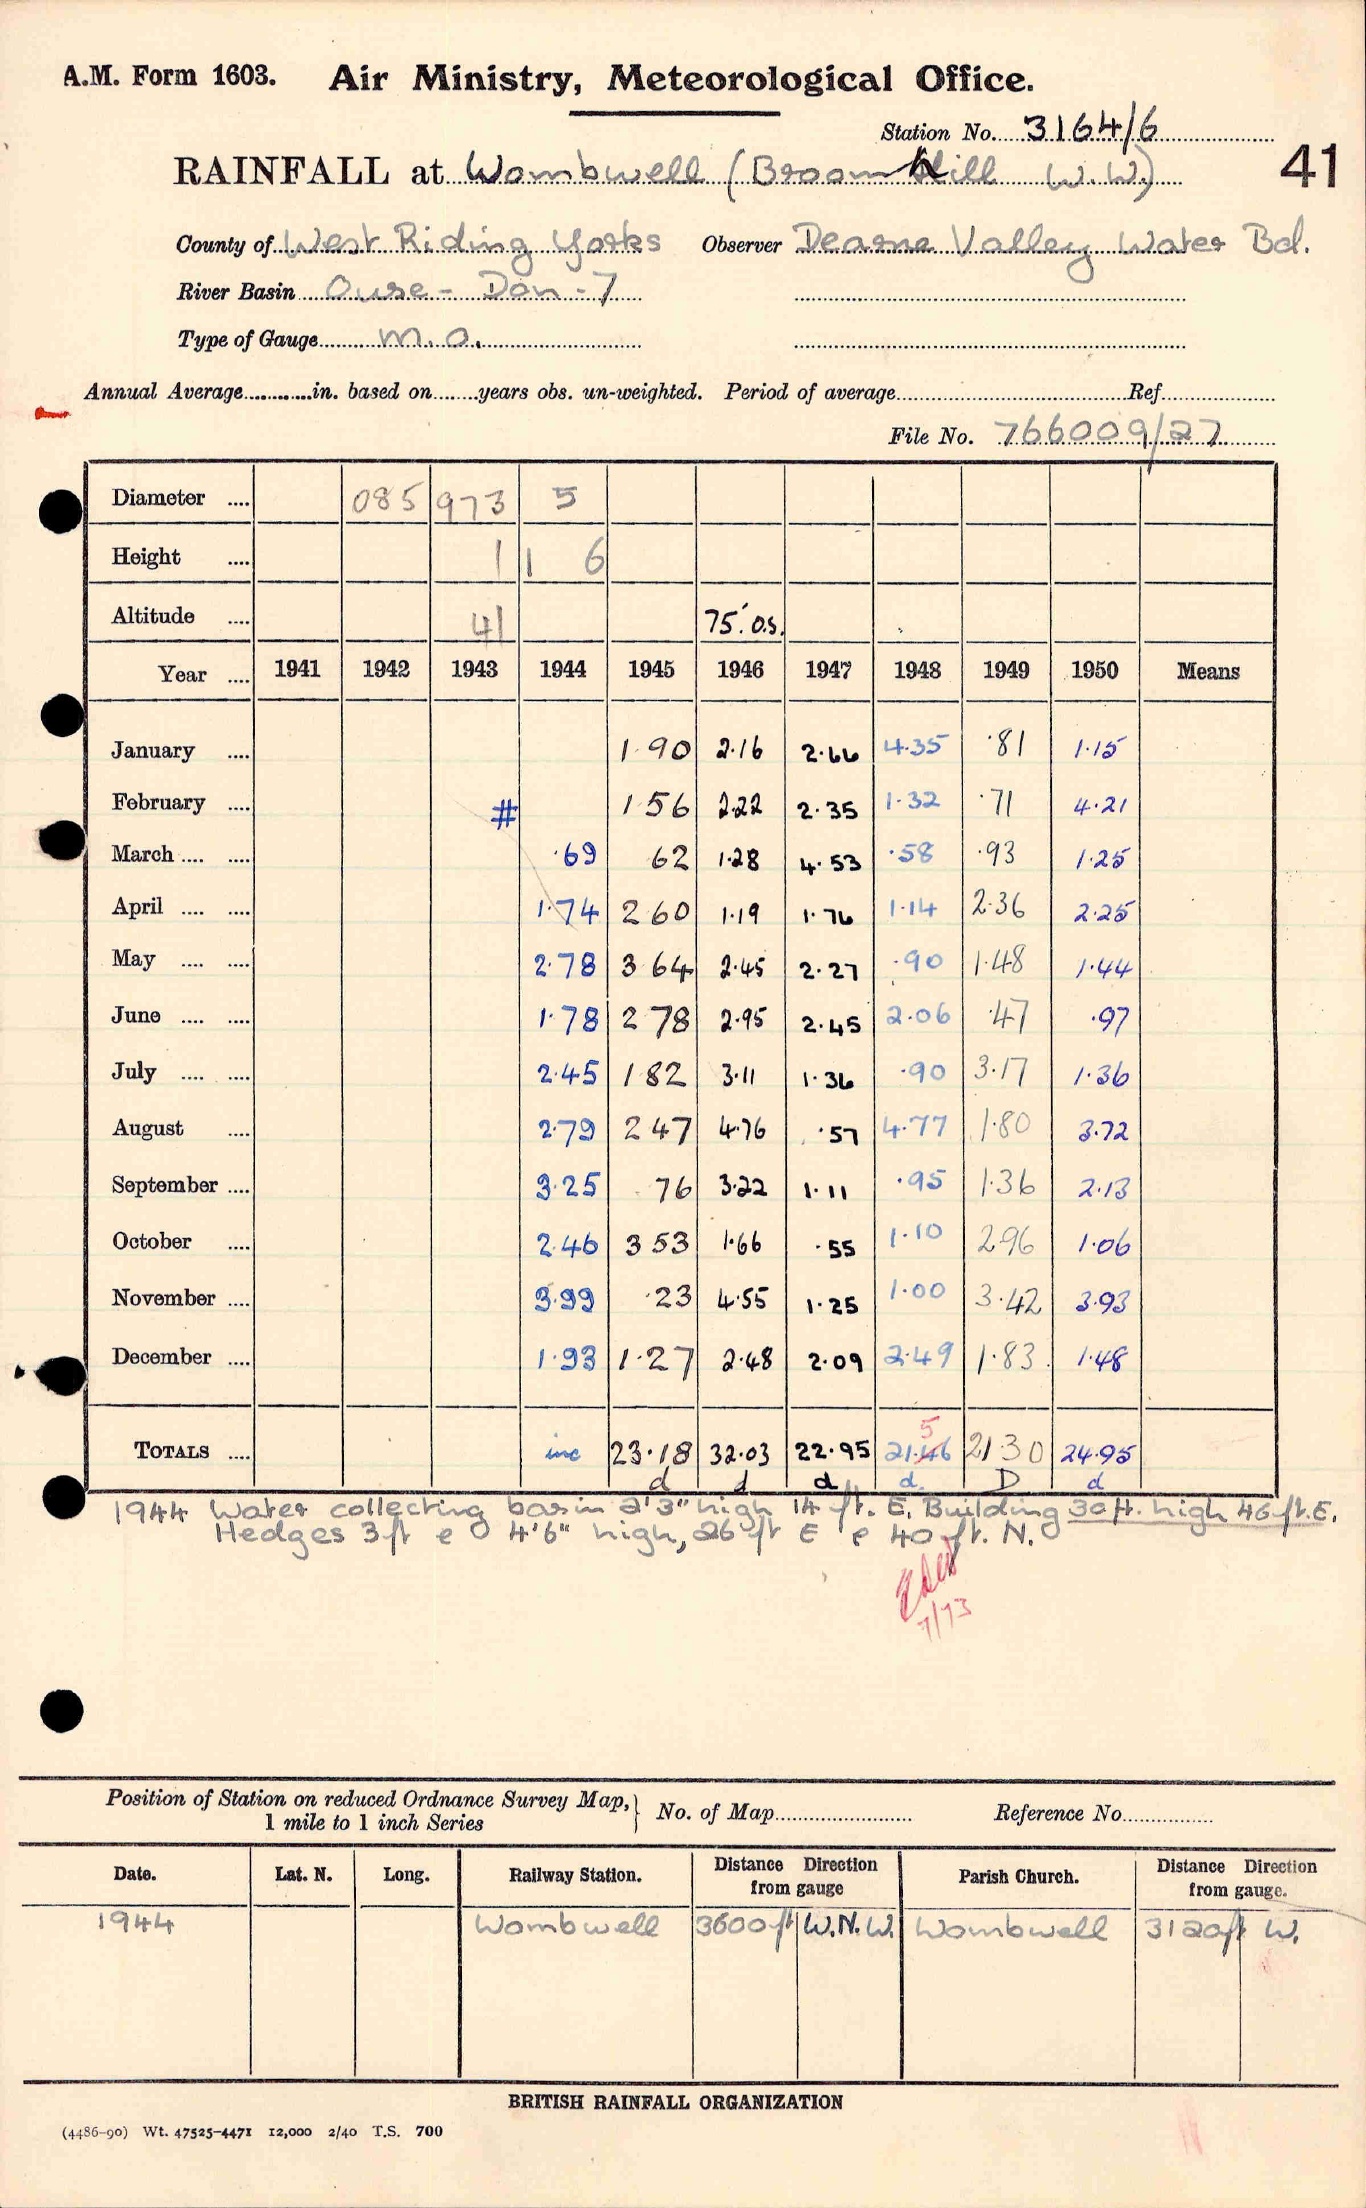 A.M. Form 1603. Air Ministry, Meteorological Office.
Station No. 3164/6
41
RAINFALL at Wombwell (Broomhill W.W.)
County of West Riding Yorks Observer Dearne Valley Water Bd.
River Basin Ouse - Don - 7
Type of Gauge M.O.
Annual Average in. based on years obs. un-weighted. Period of average Ref.
File No. 766009/27
Diameter 085 973 5
Height 1 1 6
Altitude 41 75' O.S.
Year 1941 1942 1943 1944 1945 1946 1947 1948 1949 1950 Means
January 1.90 2.16 2.66 4.35 .81 1.15
February # 1 56 2.22 2.35 1.32 .71 4.21
March .69 62 1.28 4.53 .58 .93 1.25
April 1.74 2 60 1.19 1.76 1.14 2.36 2.25
May 2.78 3 64 2.45 2.27 .90 1.48 1.44
June 1.78 2 78 2.95 2.45 2.06 .47 .97
July 2.45 1 82 3.11 1.36 .90 3.17 1.36
August 2.79 2 47 4.76 .57 4.77 1.80 3.72
September 3.25 76 3.22 1.11 .95 1.36 2.13
October 2.46 3 53 1.66 .55 1.10 2.96 1.06
November 3.99 .23 4.55 1.25 1.00 3.42 3.93
December 1.93 1.27 2.48 2.09 2.49 1.83 1.48
5
TOTALS inc 23.18 32.03 22.95 21.46 21 30 24.95
d d d d. D d
1944 Water collecting basin 2'3" high 14 ft. E. Building 30ft. high 46 ft. E.
Hedges 3 ft e 4'6" high, 26 ft E e 40 ft. N.
7/73
Position of Station on reduced Ordnance Survey Map, 1 mile to 1 inch Series } No. of Map Reference No.
Date. Lat. N. Long. Railway Station. Distance Direction from gauge Parish Church. Distance Direction from gauge.
1944 Wombwell 3600 ft W.N.W. Wombwell 3120ft W.
BRITISH RAINFALL ORGANIZATION
(4486-90) Wt. 47525-4471 12,000 2/40 T.S. 700